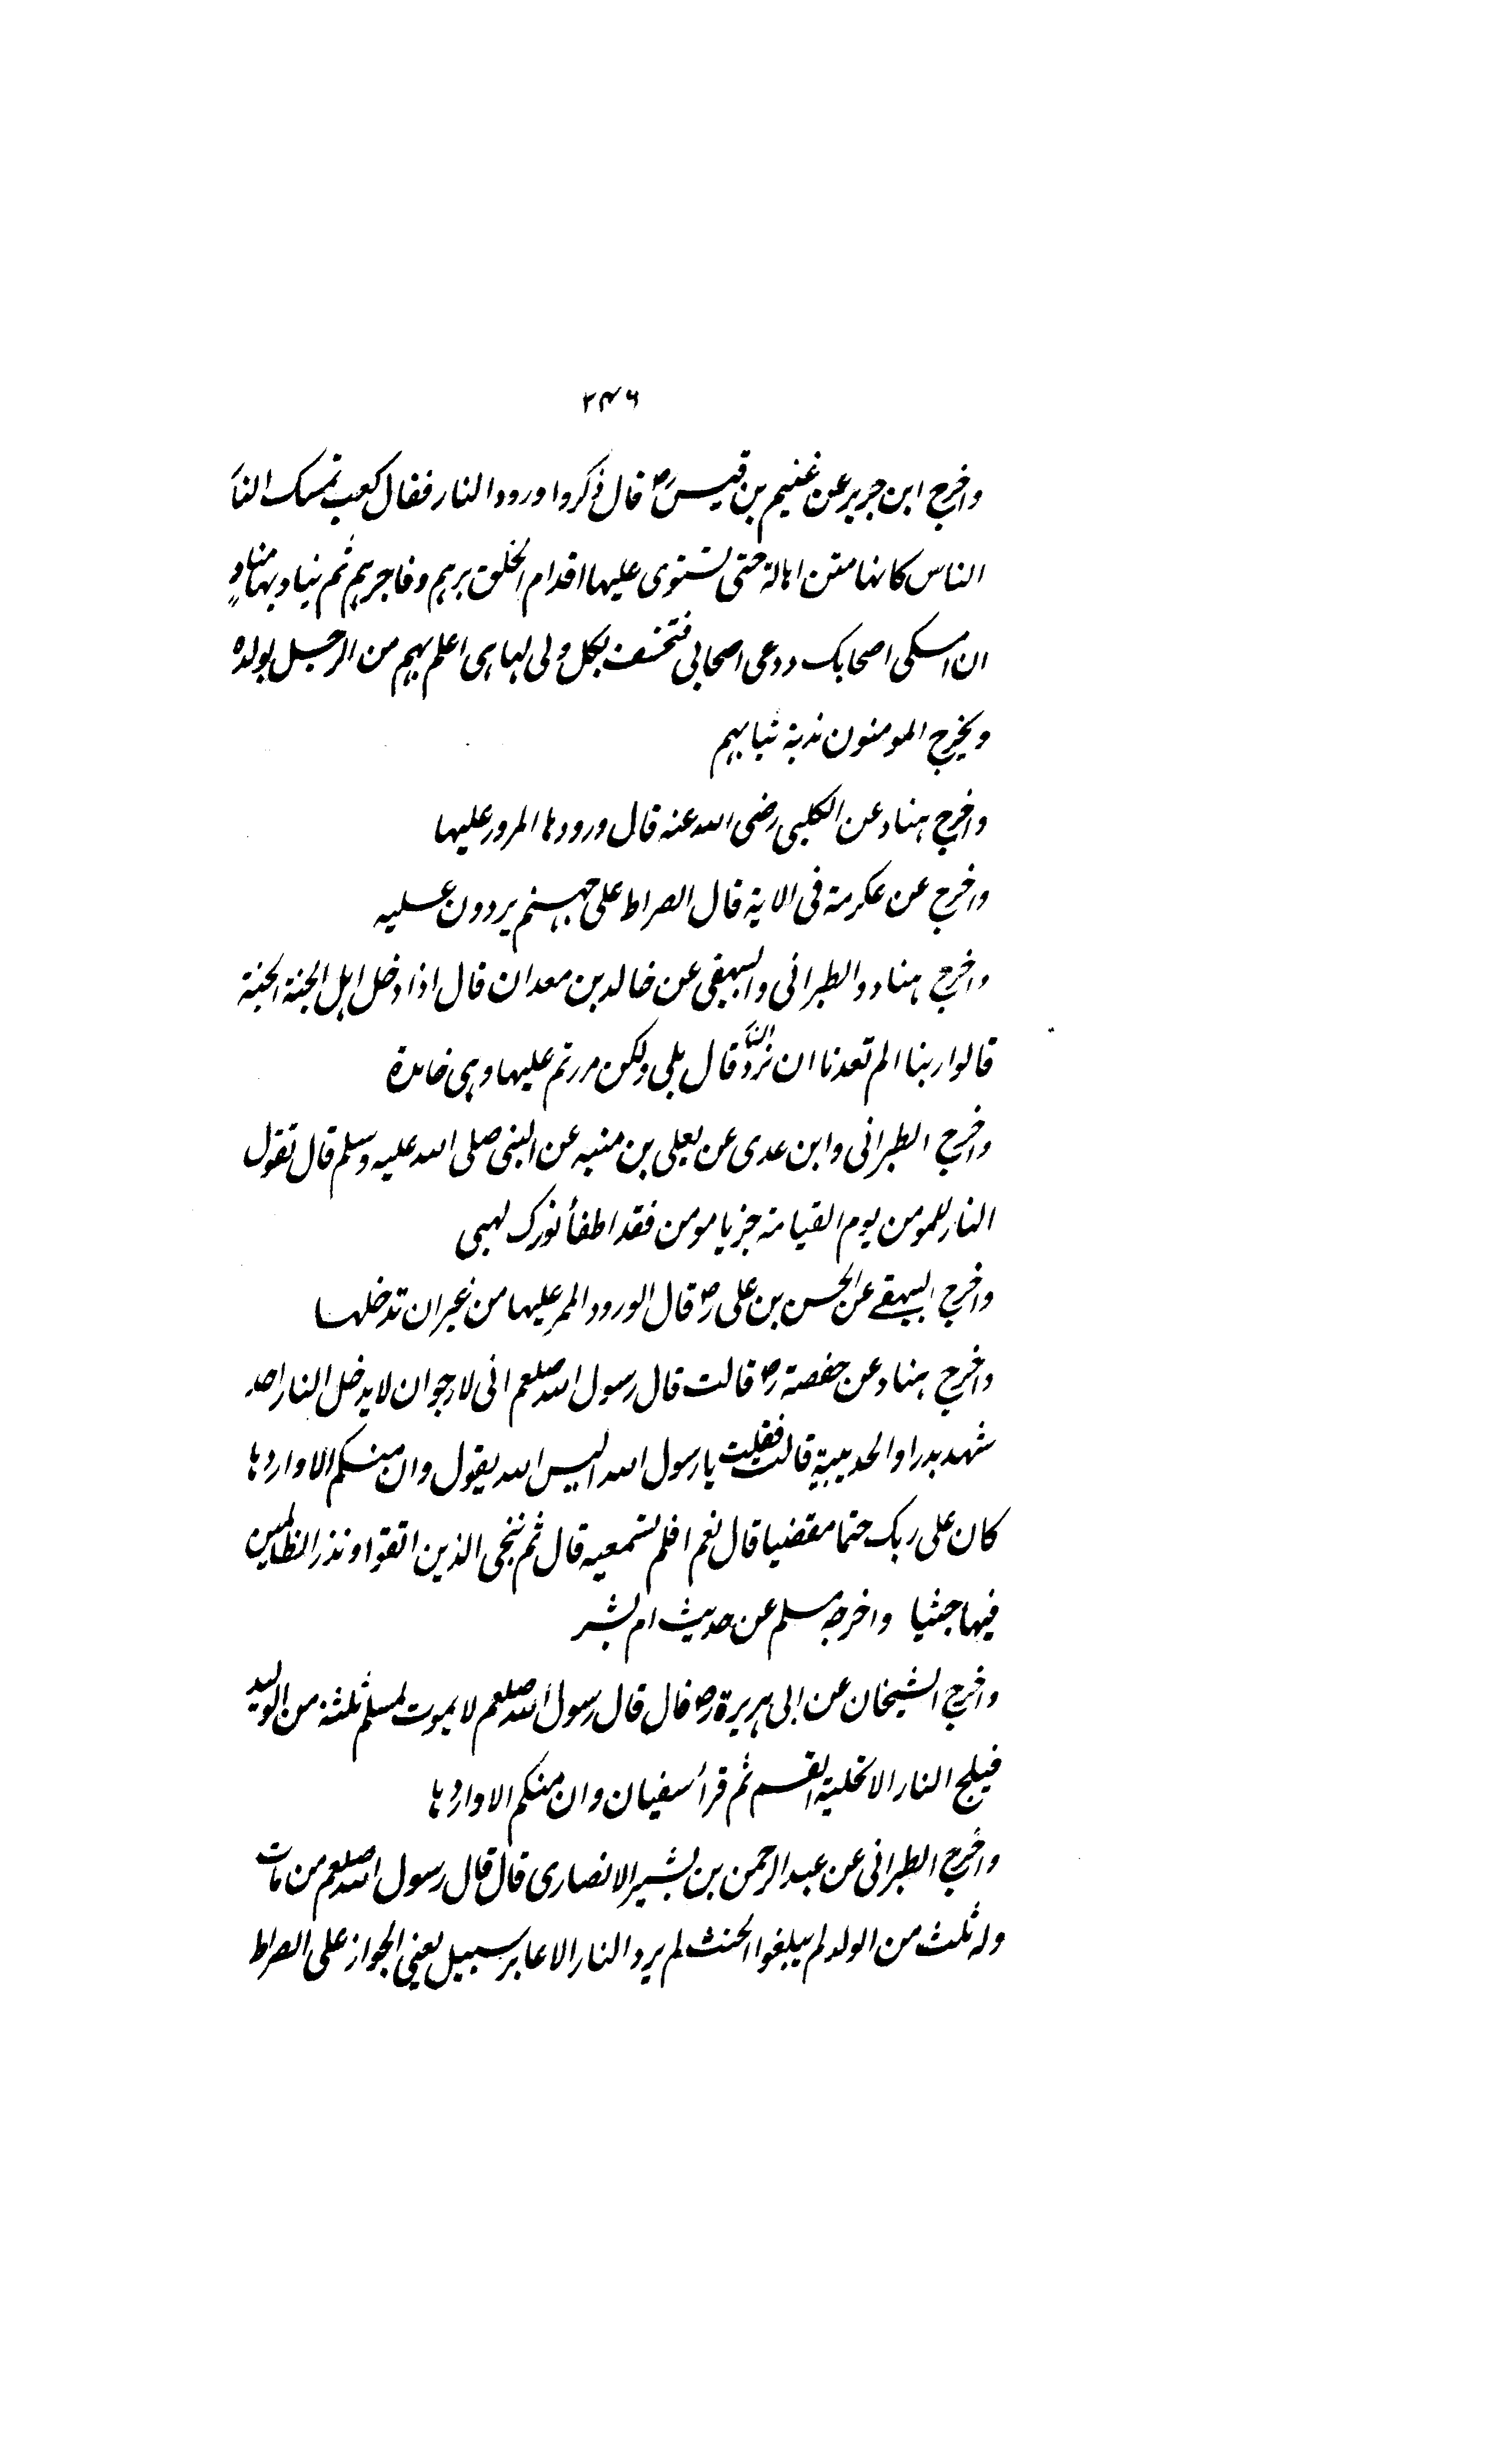 ۳۴۶
واخرج ابن جرير عن غنيم بن قيس رض قال ذكروا ورود النار فقال كعب تمسك النار
الناس كانها متن اهالة حتى تستوى عليها اقدام الخلق برهم وفاجرهم ثم يناديها مناد
ان امسكى اصحابك ودعى اصحابى فتخسف بكل ولى لها هى اعلم بهم من الرجل بولده
ويخرج المومنون ندية ثيابهم
واخرج هناد عن الكلبى رضى الله عنه قال ورودها المرور عليها
واخرج عن عكرمة فى الاية قال الصراط على جهنم يردون عليه
واخرج هناد والطبرانى والبيهقى عن خالد بن معدان قال اذا دخل اهل الجنة الجنة
قالوا ربنا الم تعدنا ان نرد النار قال بلى ولكن مررتم عليها وهى خامدة
واخرج الطبرانى وابن عدى عن يعلى بن منبه عن النبى صلى الله عليه وسلم قال تقول
النار للمومن يوم القيامة جز يا مومن فقد اطفأ نورك لهبى
واخرج البيهقے عن الحسن بن على رض قال الورود الممر عليها من غير ان تدخلها
واخرج هناد عن حفصة رض قالت قال رسول الله صلعم انى لارجو ان لا يدخل النار احد
شهد بدرا والحديبية قالت فقلت يا رسول الله اليس الله يقول وان منكم الا واردها
كان على ربك حتما مقضيا قال نعم افلم تسمعيه قال ثم ننجى الذين اتقوا ونذر الظالمين
فيها جثيا واخرجه مسلم عن حديث ام بشر
واخرج الشيخان عن ابى هريرة رض قال قال رسول الله صلعم لا يموت لمسلم ثلثة من الوليد
فيلج النار الا تحلية القسم ثم قرأ سفيان وان منكم الا واردها
واخرج الطبرانى عن عبد الرحمن بن بشير الانصارى قال قال رسول الله صلعم من مات
وله ثلث من الولد لم يبلغوا الحنث لم يرد النار الا عابر سبيل يعنى الجواز على الصراط